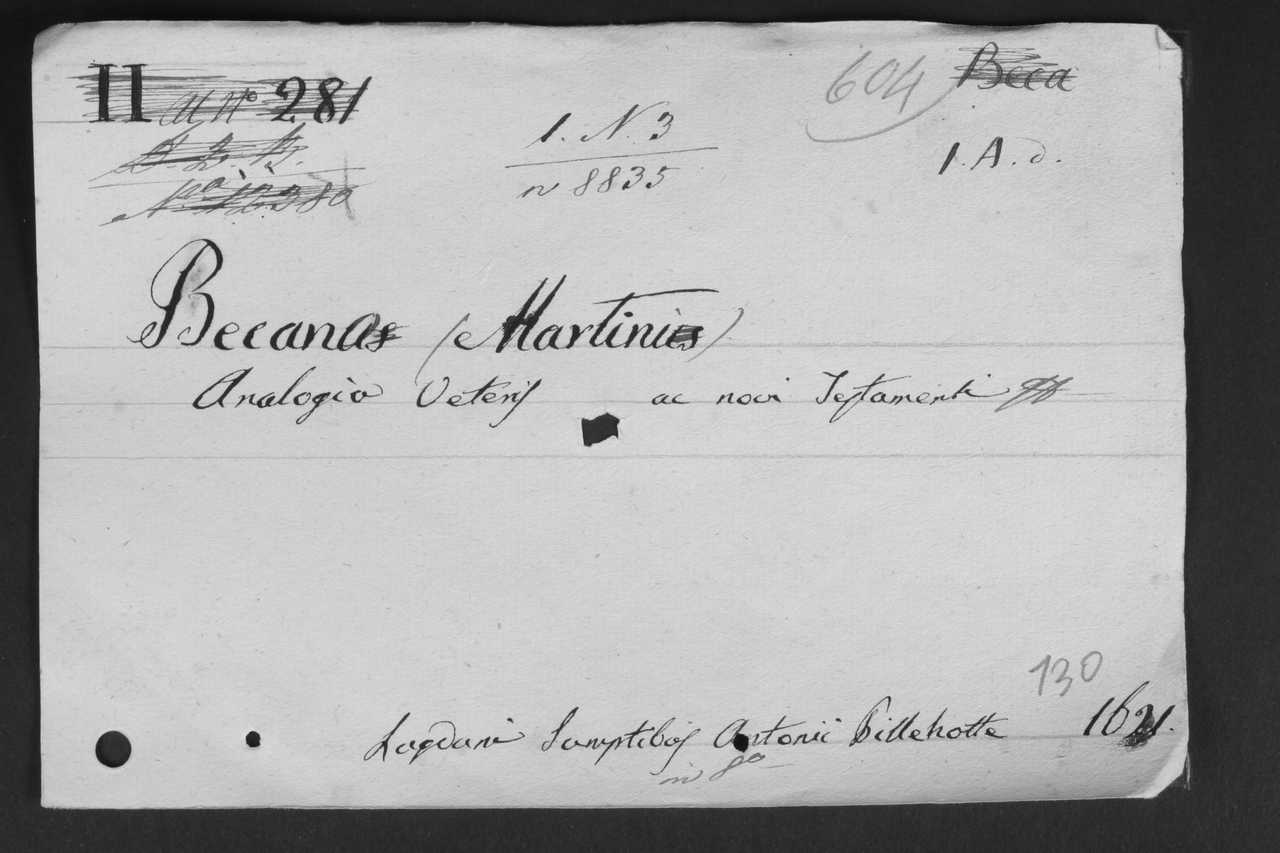 II 281
604 Beca
1. N. 3
n 8835
1. A. d.
Becanus (Martinus)
Analogia Veteris ac novi Testamenti
130
Lugduni Sumptibus Antonii Pillehotte 1621.
in 8º